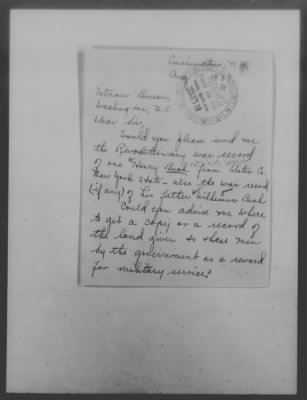 Cincinnatus, N.Y.
Aug
Veterans Bureau,
Washington, D.C.
Dear Sir,
Would you please send me
the Revolutionary war record
of one Henry Bush from Ulster Co.
New York State - also the war record
(if any) of his father Wilhelmus Bush
Could you advise me where
to get a copy or a record of
the land given to these men
by the government as a reward
for military service?